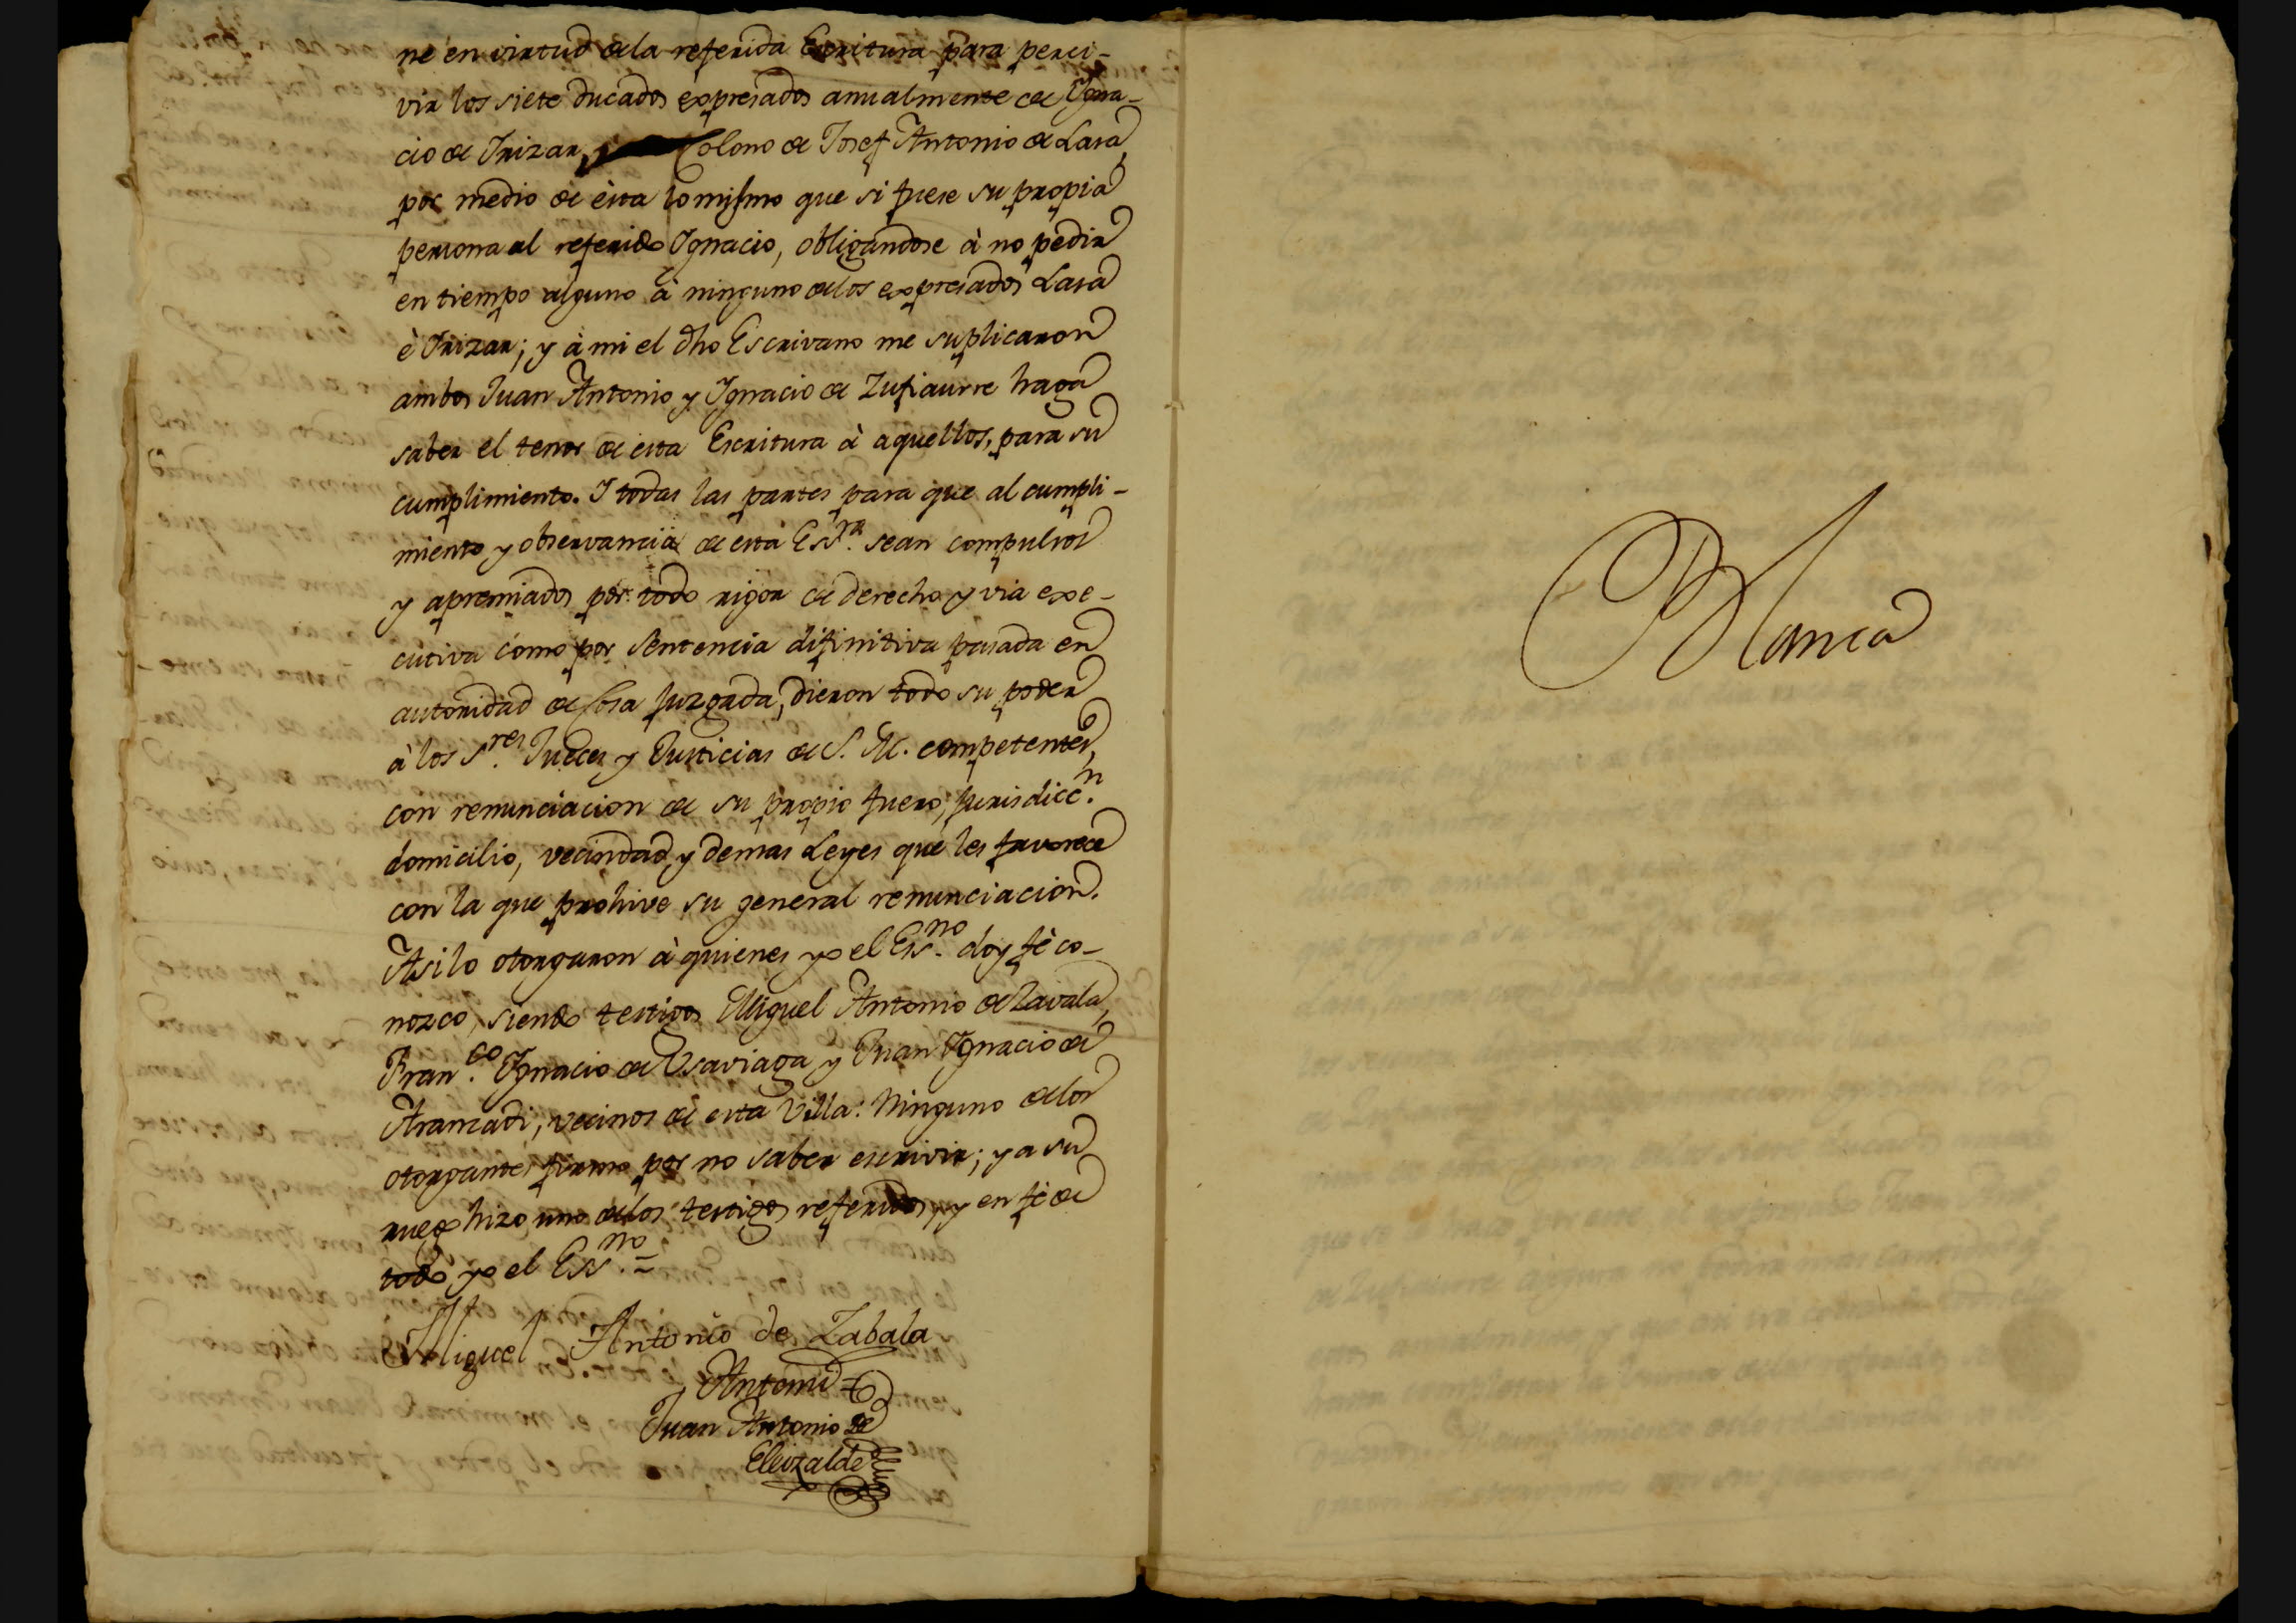 ne en virtud de la referida Escritura para perci-
vir los siete ducados expresados anualmente de Igna-
cio de Irizar, Colono de Josef Antonio de Lasa,
por medio de esta lo mismo que si fuese su propia
persona al referido Ignacio, obligandose à no pedir
en tiempo alguno à ninguno de los expresados Lasa
è Irizar; y à mi el dho Escrivano me suplicaron
ambos Juan Antonio y Ignacio de Zufiaurre haga
saber el tenor de esta Escritura à aquellos, para su
cumplimiento. I todas las partes para que al cumpli-
miento y observancia de esta Essra. sean compulsos
y apremiados por todo rigor de derecho y via exe-
cutiva como por Sentencia difinitiva pasada en
autoridad de Cosa juzgada, dieron todo su poder
à los Sres. Jueces y Justicias de S. M. competentes,
con renunciacion de su propio fuero, jurisdiccn.
domicilio, vecindad y demas Leyes que les favorece
con la que prohive su general renunciacion.
Asi lo otorgaron à quienes yo el Essno. doy fè co-
nozco, siendo testigos Miguel Antonio de Zavala,
Franco. Ignacio de Usaviaga y Juan Ignacio de
Aranzadi, vecinos de esta Villa: Ninguno de los
otorgantes firmo por no saber escrivir; y a su
ruego hizo uno de los testigos referidos, y en fè de
todo yo el Essno.=
Miguel Antonio de Zabala
Antemi
Juan Antonio de
Elizalde
Blanca